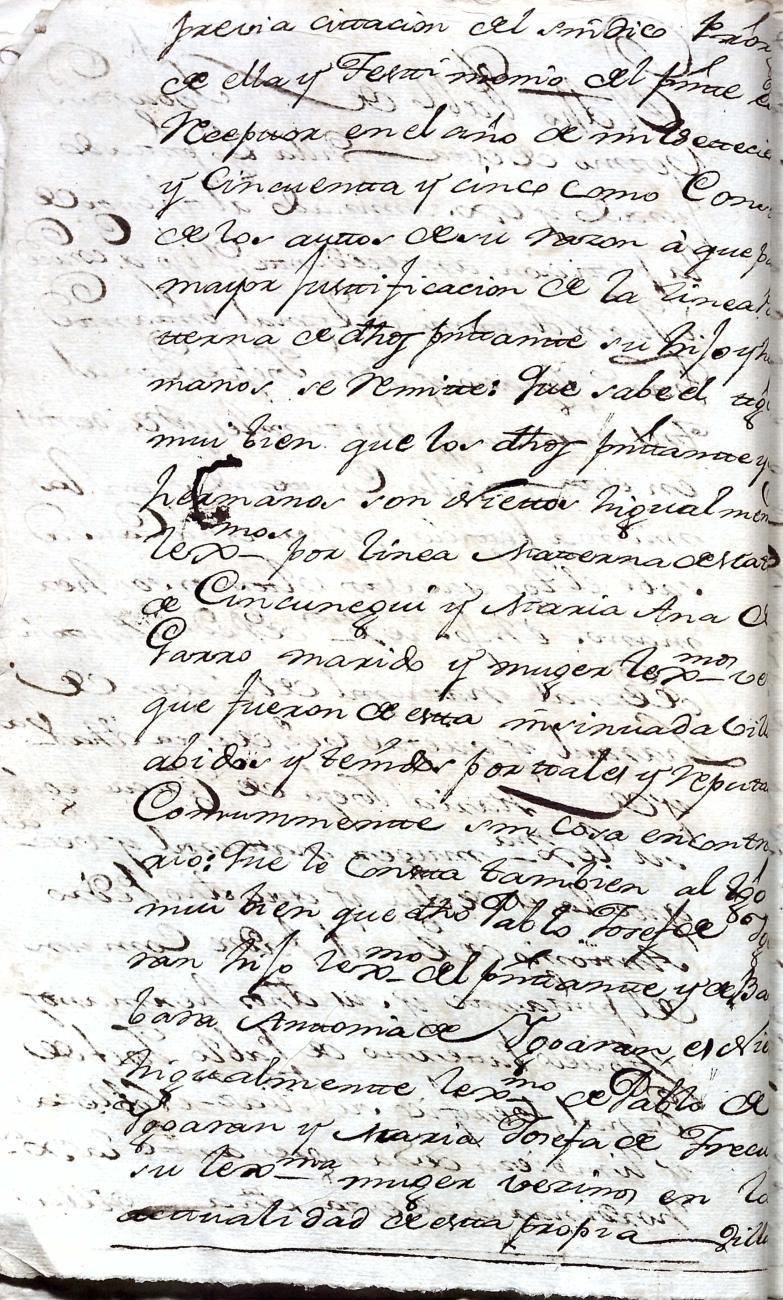 previa cittacion del sindico Pror
de ella y Testimonio del prnte
Rceptor en el año de mil settecie
y Cincuentta y cinco como Cons
de los auttos de su razon à que pa
mayor Justtificacion de la linea
tterna de dhos prnttantte su hijo y he
manos se remitte: Que sabe el ttgo
mui bien que los dhos prnttantte y
hermanos son Niettos higualmen
lexmos por linea Matterna de
de Cincunegui y Maria Ana de
Garro marido y muger lexmos ve
que fueron de estta insinuada Vill
abidos y tenidos por ttales y reputa
Comunmentte sin cosa en conttra
rio: Que le Constta tambien al ttgo
mui bien que dho Pablo Josef de
ran hijo lexmo del prnttantte y de Ba
bara Anttonia de Ygoaran, es Nie
higualmentte lexmo de Pablo de
Ygoaran y Maria Josefa de Frecu
su lexma muger vezinos en la
acttualidad de estta propia Villa